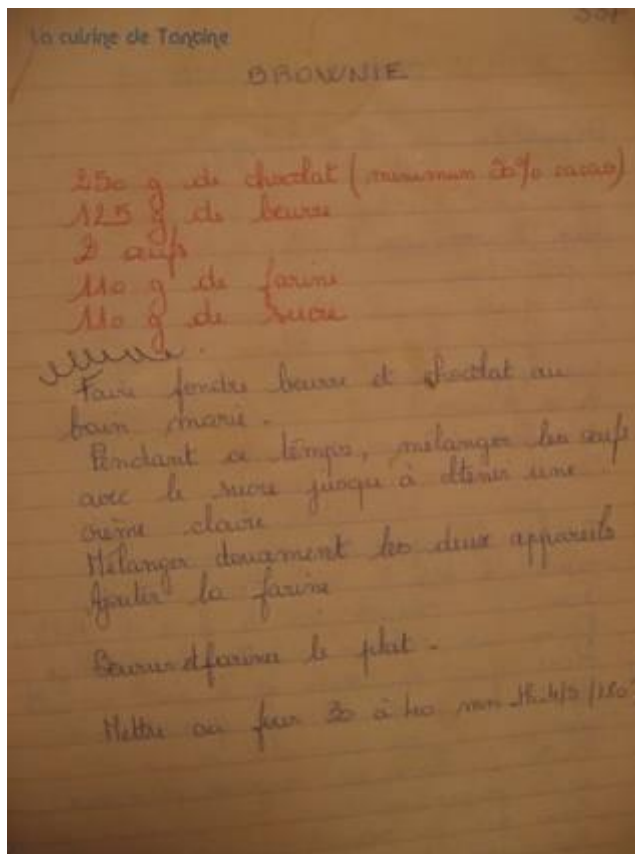 La cuisine de Tantine
BROWNIE
250 g de chocolat (minimum % cacao)
125 g de beurre
2 œufs
110 g de farine
110 g de sucre
Faire fondre beurre et chocolat au
bain marie.
Pendant ce temps, mélanger les œufs
avec le sucre jusqu'à obtenir une
crème claire
Mélanger doucement les deux appareils
Ajouter la farine
Beurrer et fariner le plat.
Mettre au four 30 à 40 mn th. 4/5